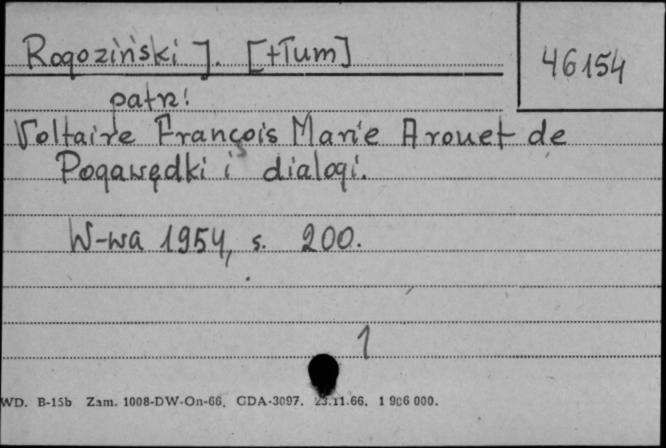 Rogoziński J. [tłum]
46154
patrz:
Voltaire François Marie Arouet de
Pogawędki i dialogi.
W-wa 1954, s. 200.
1
WD. B-15b Zam. 1008-DW-On-66. CDA-3097. 23.11.66. 1 906 000.